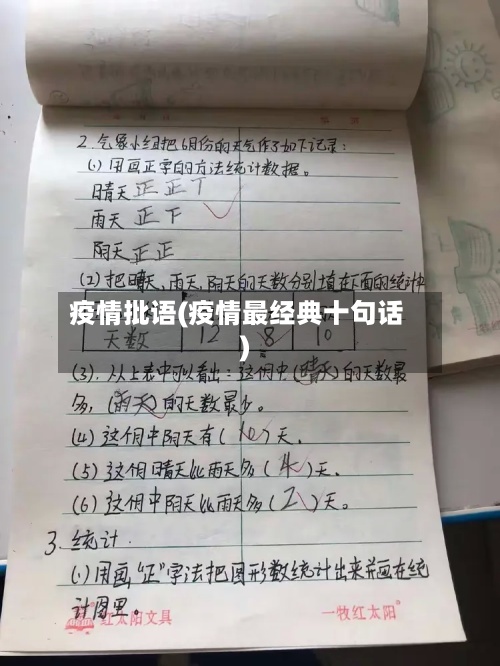 2.气象小组把6月份的天气作了如下记录：
(1)用画正字的方法统计数据。
晴天 正 正 丅
雨天 正 下
阴天 正 正
(2)把晴天、雨天、阴天的天数分别填在下面的统计中
疫情批语(疫情最经典十句话
)
天数 12 8 10
(3).从以上表中可以看出：这个月中(晴天)的天数最
多，(雨天)的天数最少。
(4)这个月中阴天有(10)天.
(5)这个月晴天比雨天多(4)天.
(6)这个月中阴天比雨天多(2)天。
3.统计.
(1)用画"正"字法把图形数统计出来并画在统
计图里。
红太阳文具
一牧红太阳